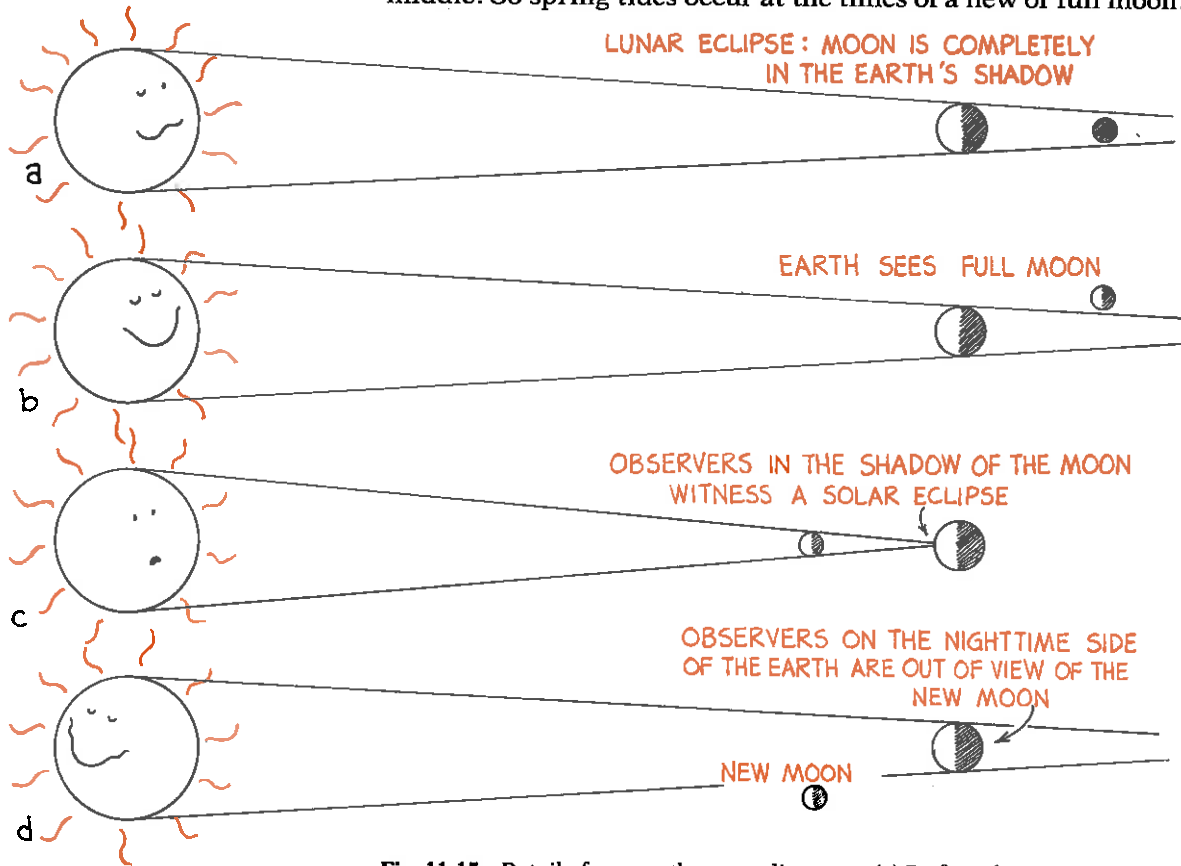 So spring tides occur at the times of a new or full moon
LUNAR ECLIPSE: MOON IS COMPLETELY
IN THE EARTH'S SHADOW
a
EARTH SEES FULL MOON
b
OBSERVERS IN THE SHADOW OF THE MOON
WITNESS A SOLAR ECLIPSE
c
OBSERVERS ON THE NIGHTTIME SIDE
OF THE EARTH ARE OUT OF VIEW OF THE
NEW MOON
NEW MOON
d